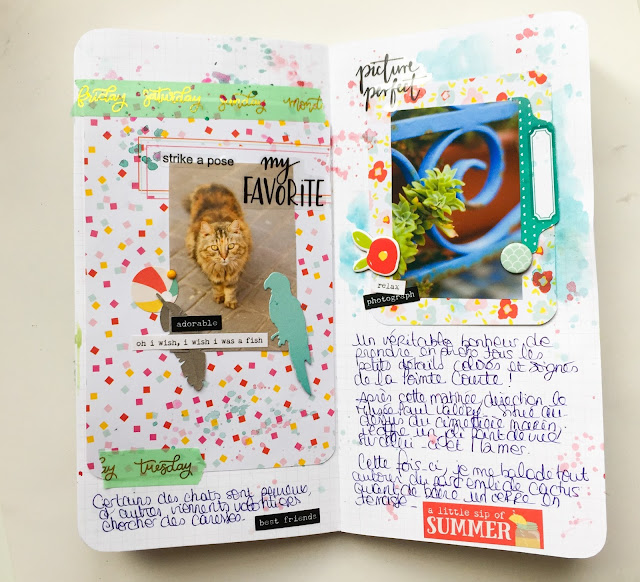 friday saturday sunday mond
strike a pose
my
FAVORITE
adorable
oh i wish, i wish i was a fish
ay tuesday
Certains des chats sont peureux,
d'autres viennent volontiers
chercher des caresses.
best friends
picture
perfect
relax
photograph
Un véritable bonheur de
prendre en photo tous les
petits détails colorés et soignés
de la Pointe Courte !
Après cette matinée, direction le
Musée Paul Valéry. Situé au
dessus du cimetière marin,
point de vue
mer.
Cette fois-ci, je me balade tout
autour du parc empli de cactus
autant de boire un verre en
terrasse.
a little sip of
SUMMER